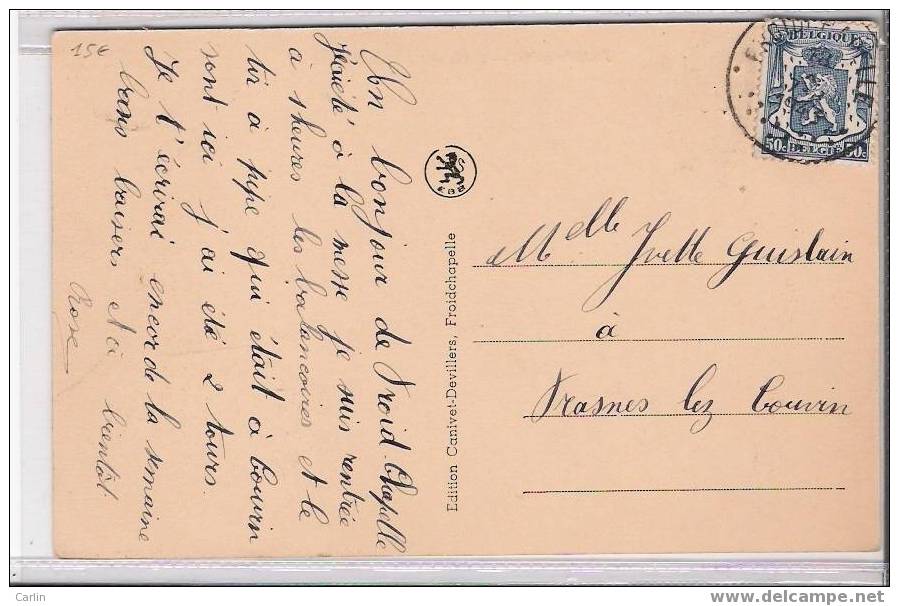 15€
Un bonjour de Froid-Chapelle
j'ai été à la messe je suis rentrée
à heures les balançoires et le
tir à pipe qui était à Couvin
sont ici j'ai été 2 tours.
Je t'écrirai encor de la semaine
bons baisers et à bientôt.
Rose
Edition Canivet-Devillers, Froidchapelle
BELGIQUE
50c BELGIË 50c
Melle Yvette Guislain
à
Frasnes lez Couvin
Carlin
www.delcampe.net